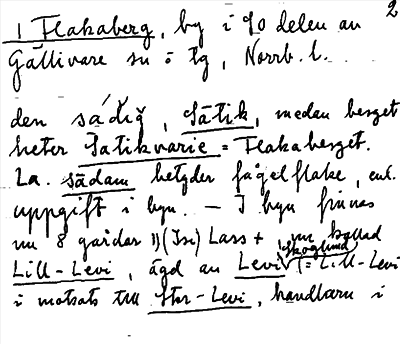 2
1 Flakaberg, by i SO delen av
Gällivare sn o tg, Norrb. l.
den sádiǧ, Sätik, medan berget
heter Satikvarie = Flakaberget.
La. sādam betyder fågelflake, enl.
uppgift i byn. — I byn finnas
nu 8 gårdar 1) (Isr) Lass +, nu kallad
Lill-Levi, ägd av Levi Skoglund (= Lill-Levi
i motsats till Stor-Levi, handlarn i